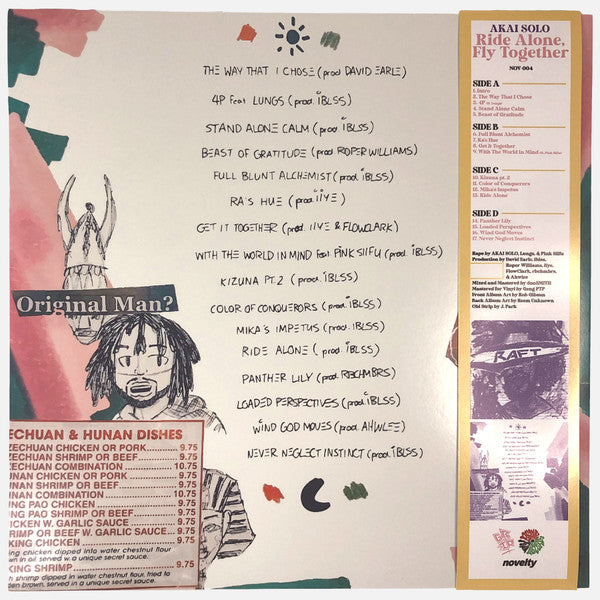 THE WAY THAT I CHOSE (prod DAVID EARLE)
4P feat LUNGS (prod. iBLSS)
STAND ALONE CALM (prod. iBLSS)
BEAST OF GRATITUDE (prod. ROPER WILLIAMS)
FULL BLUNT ALCHEMIST (prod. iBLSS)
RA'S HUE (prod. iiYE)
GET IT TOGETHER (prod. iiYE & FLOWCLARK)
WITH THE WORLD IN MIND feat PINK SIIFU (prod. iBLSS)
KIZUNA PT. 2 (prod. iBLSS)
COLOR OF CONQUERORS (prod. iBLSS)
MIKA'S IMPETUS (prod. iBLSS)
RIDE ALONE (prod. iBLSS)
PANTHER LILY (prod. RBCHMBRS)
LOADED PERSPECTIVES (prod. iBLSS)
WIND GOD MOVES (prod. AHWLEE)
NEVER NEGLECT INSTINCT (prod. iBLSS)
Original Man?
ECHUAN & HUNAN DISHES
ZECHUAN CHICKEN OR PORK 9.75
ZECHUAN SHRIMP OR BEEF 9.75
ZECHUAN COMBINATION 10.75
UNAN CHICKEN OR PORK 9.75
UNAN SHRIMP OR BEEF 9.75
UNAN COMBINATION 10.75
UNG PAO CHICKEN 9.75
UNG PAO SHRIMP OR BEEF 9.75
HICKEN W. GARLIC SAUCE 9.75
RIMP OR BEEF W. GARLIC SAUCE 9.75
KING CHICKEN 9.75
ing chicken dipped into water chestnut flour
wn in oil. served w. a unique secret sauce.
KING SHRIMP 9.75
h shrimp dipped in water chestnut flour, fried to
den brown, served w. a unique secret sauce.
AKAI SOLO
Ride Alone,
Fly Together
NOV 004
SIDE A
1. Intro
2. The Way That I Chose
3. 4P ft. Lungs
4. Stand Alone Calm
5. Beast of Gratitude
SIDE B
6. Full Blunt Alchemist
7. Ra's Hue
8. Get It Together
9. With The World In Mind ft. Pink Siifu
SIDE C
10. Kizuna pt. 2
11. Color of Conquerors
12. Mika's Impetus
13. Ride Alone
SIDE D
14. Panther Lily
15. Loaded Perspectives
16. Wind God Moves
17. Never Neglect Instinct
Raps by AKAI SOLO, Lungs, & Pink Siifu
Production by David Earle, iblss,
Roper Williams, iiye,
FlowClark, rbchmbrs,
& Ahwlee
Mixed and Mastered by
Mastered for Vinyl by Gung PTP
Front Album Art by Rob Gibsun
Back Album Art by Reem Unknown
Obi Strip by J. Park
RAFT
novelty